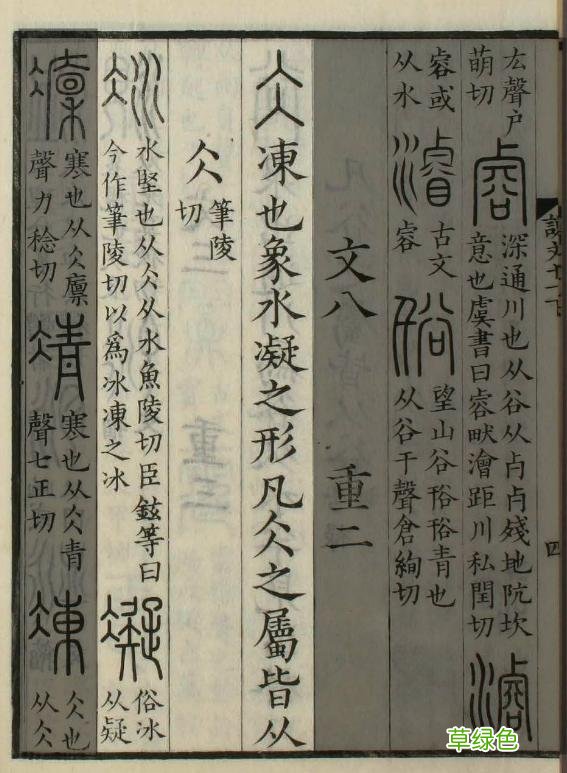 厷聲戶
萌切
㕡
深通川也从谷从卢卢殘地阬坎
意也虞書曰㕡畎澮距川私閏切
濬
㕡或
从水
濬
古文
㕡
谸
望山谷谸谸青也
从谷千聲倉絢切
文八 重二
仌凍也象水凝之形凡仌之屬皆从
仌
筆陵
切
冰
水堅也从仌从水魚陵切臣鉉等曰
今作筆陵切以爲冰凍之冰
凝
俗冰
从疑
凜
寒也从仌廩
聲力稔切
凊
寒也从仌青
聲七正切
凍
仌也
从仌
說文十一下
四
草绿色